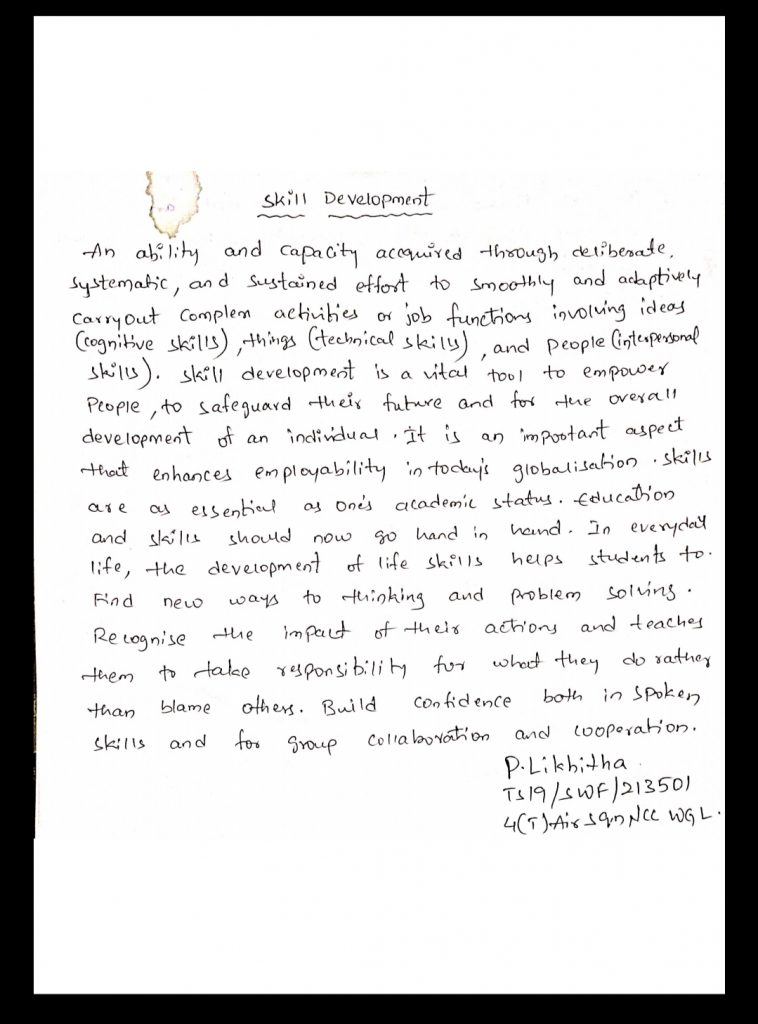 Skill Development
An ability and capacity accquired through deliberate,
systematic, and sustained effort to smoothly and adaptively
carryout complex activities or job functions involving ideas
(cognitive skills), things (technical skills), and people (interpersonal
skills). Skill development is a vital tool to empower
People, to safeguard their future and for the overall
development of an individual. It is an important aspect
that enhances employability in today's globalisation. skills
are as essential as one's academic status. Education
and skills should now go hand in hand. In everyday
life, the development of life skills helps students to.
Find new ways to thinking and problem solving.
Recognise the impact of their actions and teaches
them to take responsibility for what they do rather
than blame others. Build confidence both in spoken
skills and for group collaboration and cooperation.
P. Likhitha.
TS19/SWF/213501
4(T) Air Sqn NCC WGL.